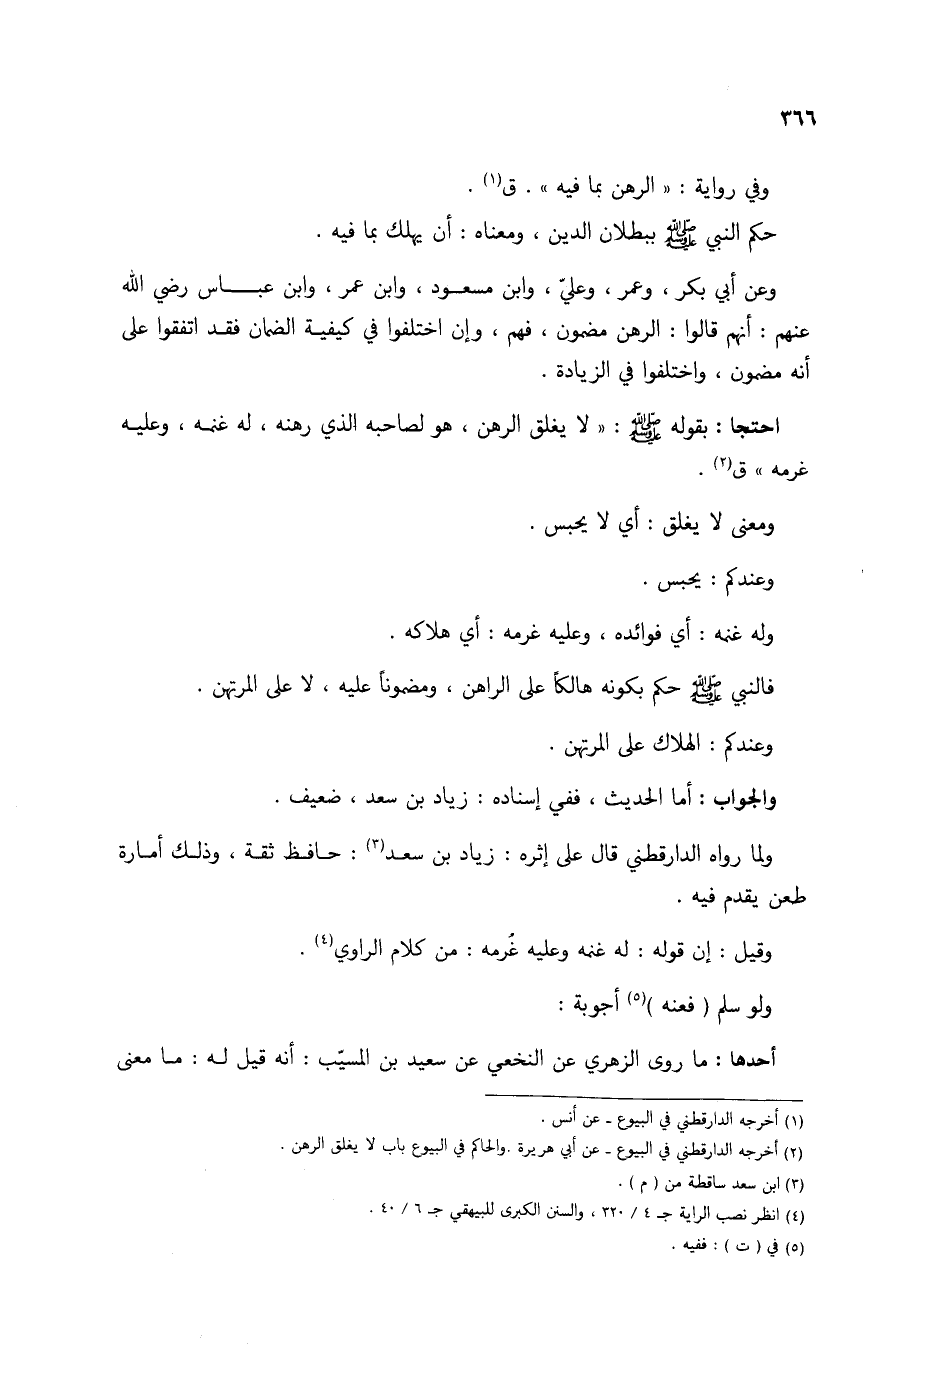 ٣٦٦
وفي رواية : « الرهن بما فيه » . ق(١) .
حكم النبي ﷺ ببطلان الدين ، ومعناه : أن يهلك بما فيه .
وعن أبي بكر ، وعمر ، وعليّ ، وابن مسعود ، وابن عمر ، وابن عباس رضي الله
عنهم : أنهم قالوا : الرهن مضمون ، فهم ، وإن اختلفوا في كيفية الضمان فقد اتفقوا على
أنه مضمون ، واختلفوا في الزيادة .
احتجا : بقوله ﷺ : « لا يغلق الرهن ، هو لصاحبه الذي رهنه ، له غنمه ، وعليه
غرمه » ق(٢) .
ومعنى لا يغلق : أي لا يحبس .
وعندكم : يحبس .
وله غنمه : أي فوائده ، وعليه غرمه : أي هلاكه .
فالنبي ﷺ حكم بكونه هالكاً على الراهن ، ومضموناً عليه ، لا على المرتهن .
وعندكم : الهلاك على المرتهن .
والجواب : أما الحديث ، ففي إسناده : زياد بن سعد ، ضعيف .
ولما رواه الدارقطني قال على إثره : زياد بن سعد(٣) : حافظ ثقة ، وذلك أمارة
طعن يقدم فيه .
وقيل : إن قوله : له غنمه وعليه غُرمه : من كلام الراوي(٤) .
ولو سلم ( فعنه )(٥) أجوبة :
أحدها : ما روى الزهري عن النخعي عن سعيد بن المسيّب : أنه قيل له : ما معنى
(١) أخرجه الدارقطني في البيوع ـ عن أنس .
(٢) أخرجه الدارقطني في البيوع ـ عن أبي هريرة .والحاكم في البيوع باب لا يغلق الرهن .
(٣) ابن سعد ساقطة من ( م ) .
(٤) انظر نصب الراية جـ ٤ / ٣٢٠ ، والسنن الكبرى للبيهقي جـ ٦ / ٤٠ .
(٥) في ( ت ) : ففيه .